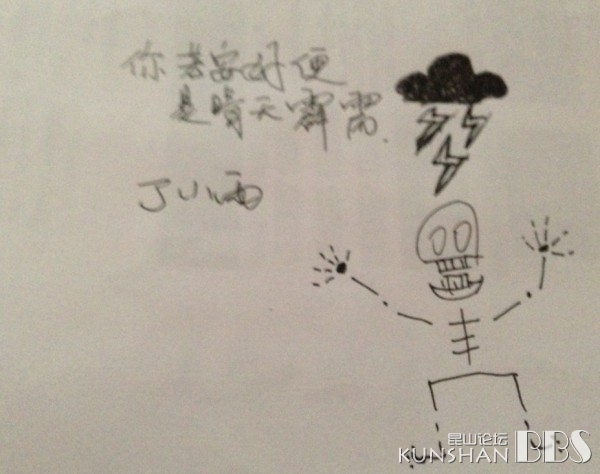 你若安好便
是晴天霹雳.
丁小雨
昆山论坛
KUNSHAN BBS